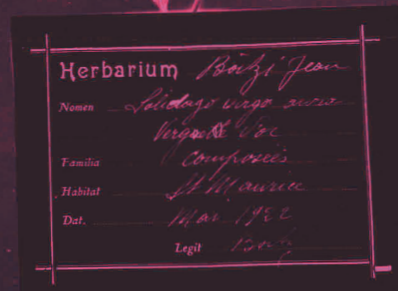 Herbarium Jean
Nomen Solidago virga aurea
Verge d'or
Familia Composées
Habitat St Maurice
Dat. Mai 1922
Legit